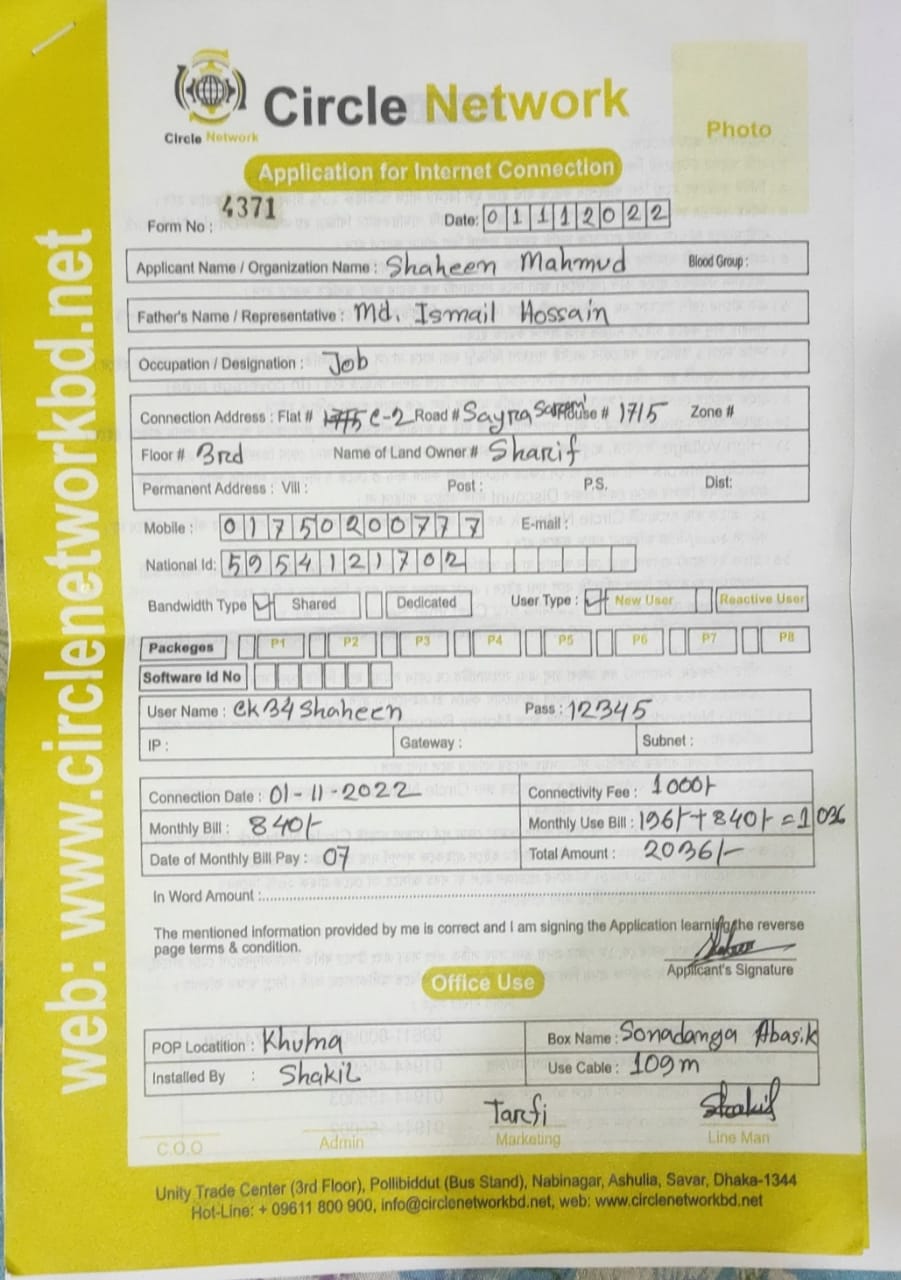 Circle Network
Circle Network
Photo
Application for Internet Connection
Form No : 4371
Date: 01112022
Applicant Name / Organization Name : Shaheen Mahmud Blood Group :
Father's Name / Representative : Md. Ismail Hossain
Occupation / Designation : Job
Connection Address : Flat # C-2 Road # Sayra House # 1715 Zone #
Floor # 3rd Name of Land Owner # Sharif
Permanent Address : Vill : Post : P.S. Dist:
Mobile : 01750200777 E-mail :
National Id: 5954121702
Bandwidth Type Shared Dedicated User Type : New User Reactive User
Packeges P1 P2 P3 P4 P5 P6 P7 P8
Software Id No
User Name : Ck34Shaheen Pass : 12345
IP : Gateway : Subnet :
Connection Date : 01-11-2022 Connectivity Fee : 1000/-
Monthly Bill : 840/- Monthly Use Bill : 196/-+840/-=1036
Date of Monthly Bill Pay : 07 Total Amount : 2036/-
In Word Amount :
The mentioned information provided by me is correct and I am signing the Application learning the reverse
page terms & condition.
Applicant's Signature
Office Use
POP Locatition : Khulna Box Name : Sonadanga Abasik
Installed By : Shakil Use Cable : 109m
Tarfi Shakil
C.O.O Admin Marketing Line Man
Unity Trade Center (3rd Floor), Pollibiddut (Bus Stand), Nabinagar, Ashulia, Savar, Dhaka-1344
Hot-Line: + 09611 800 900, info@circlenetworkbd.net, web: www.circlenetworkbd.net
web: www.circlenetworkbd.net